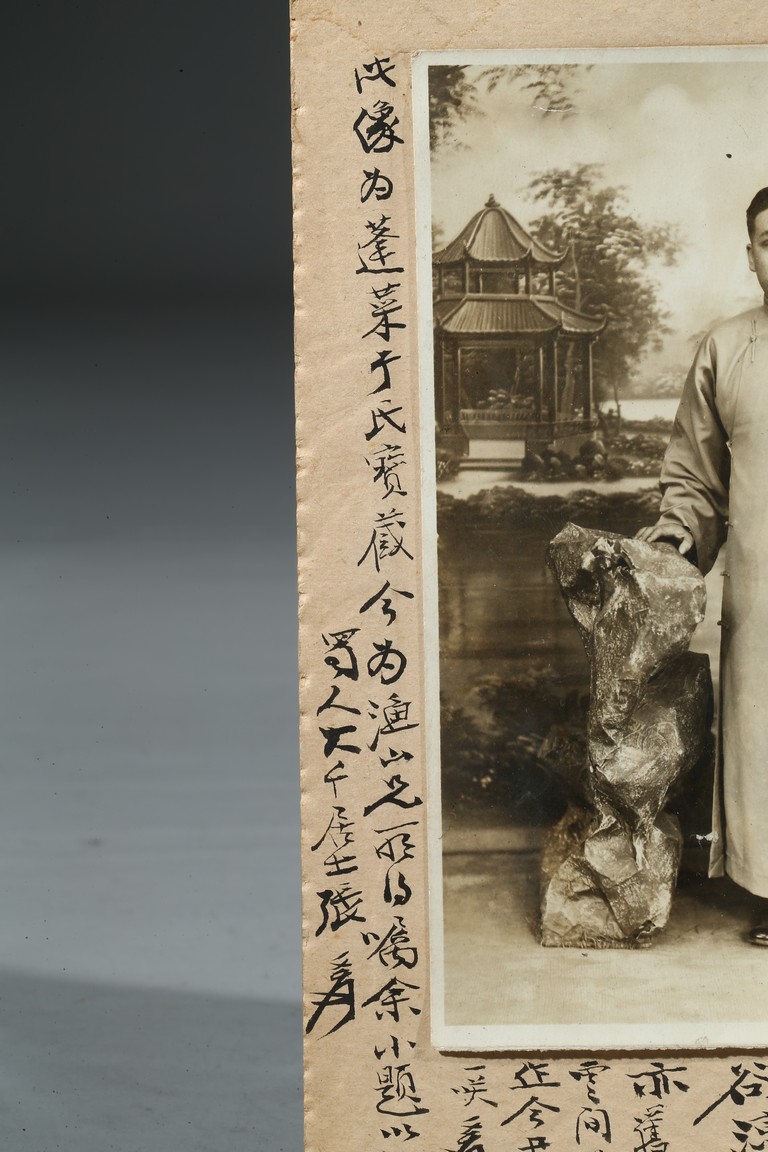 欲涼
亦舊
雲間
近今
一笑
此像为蓬莱于氏寶藏今为漁山兄所得囑余小題以
蜀人大千居士張爰